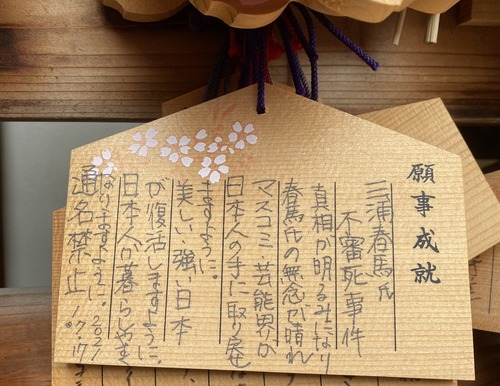 願事成就
三浦春馬氏
不審死事件
真相が明るみになり
春馬氏の無念が晴れ
マスコミ・芸能界が
日本人の手に取り戻せ
ますように。
美しい、強い日本
が復活しますように。
日本人が暮らしやすく
なりますように。2021
通名禁止